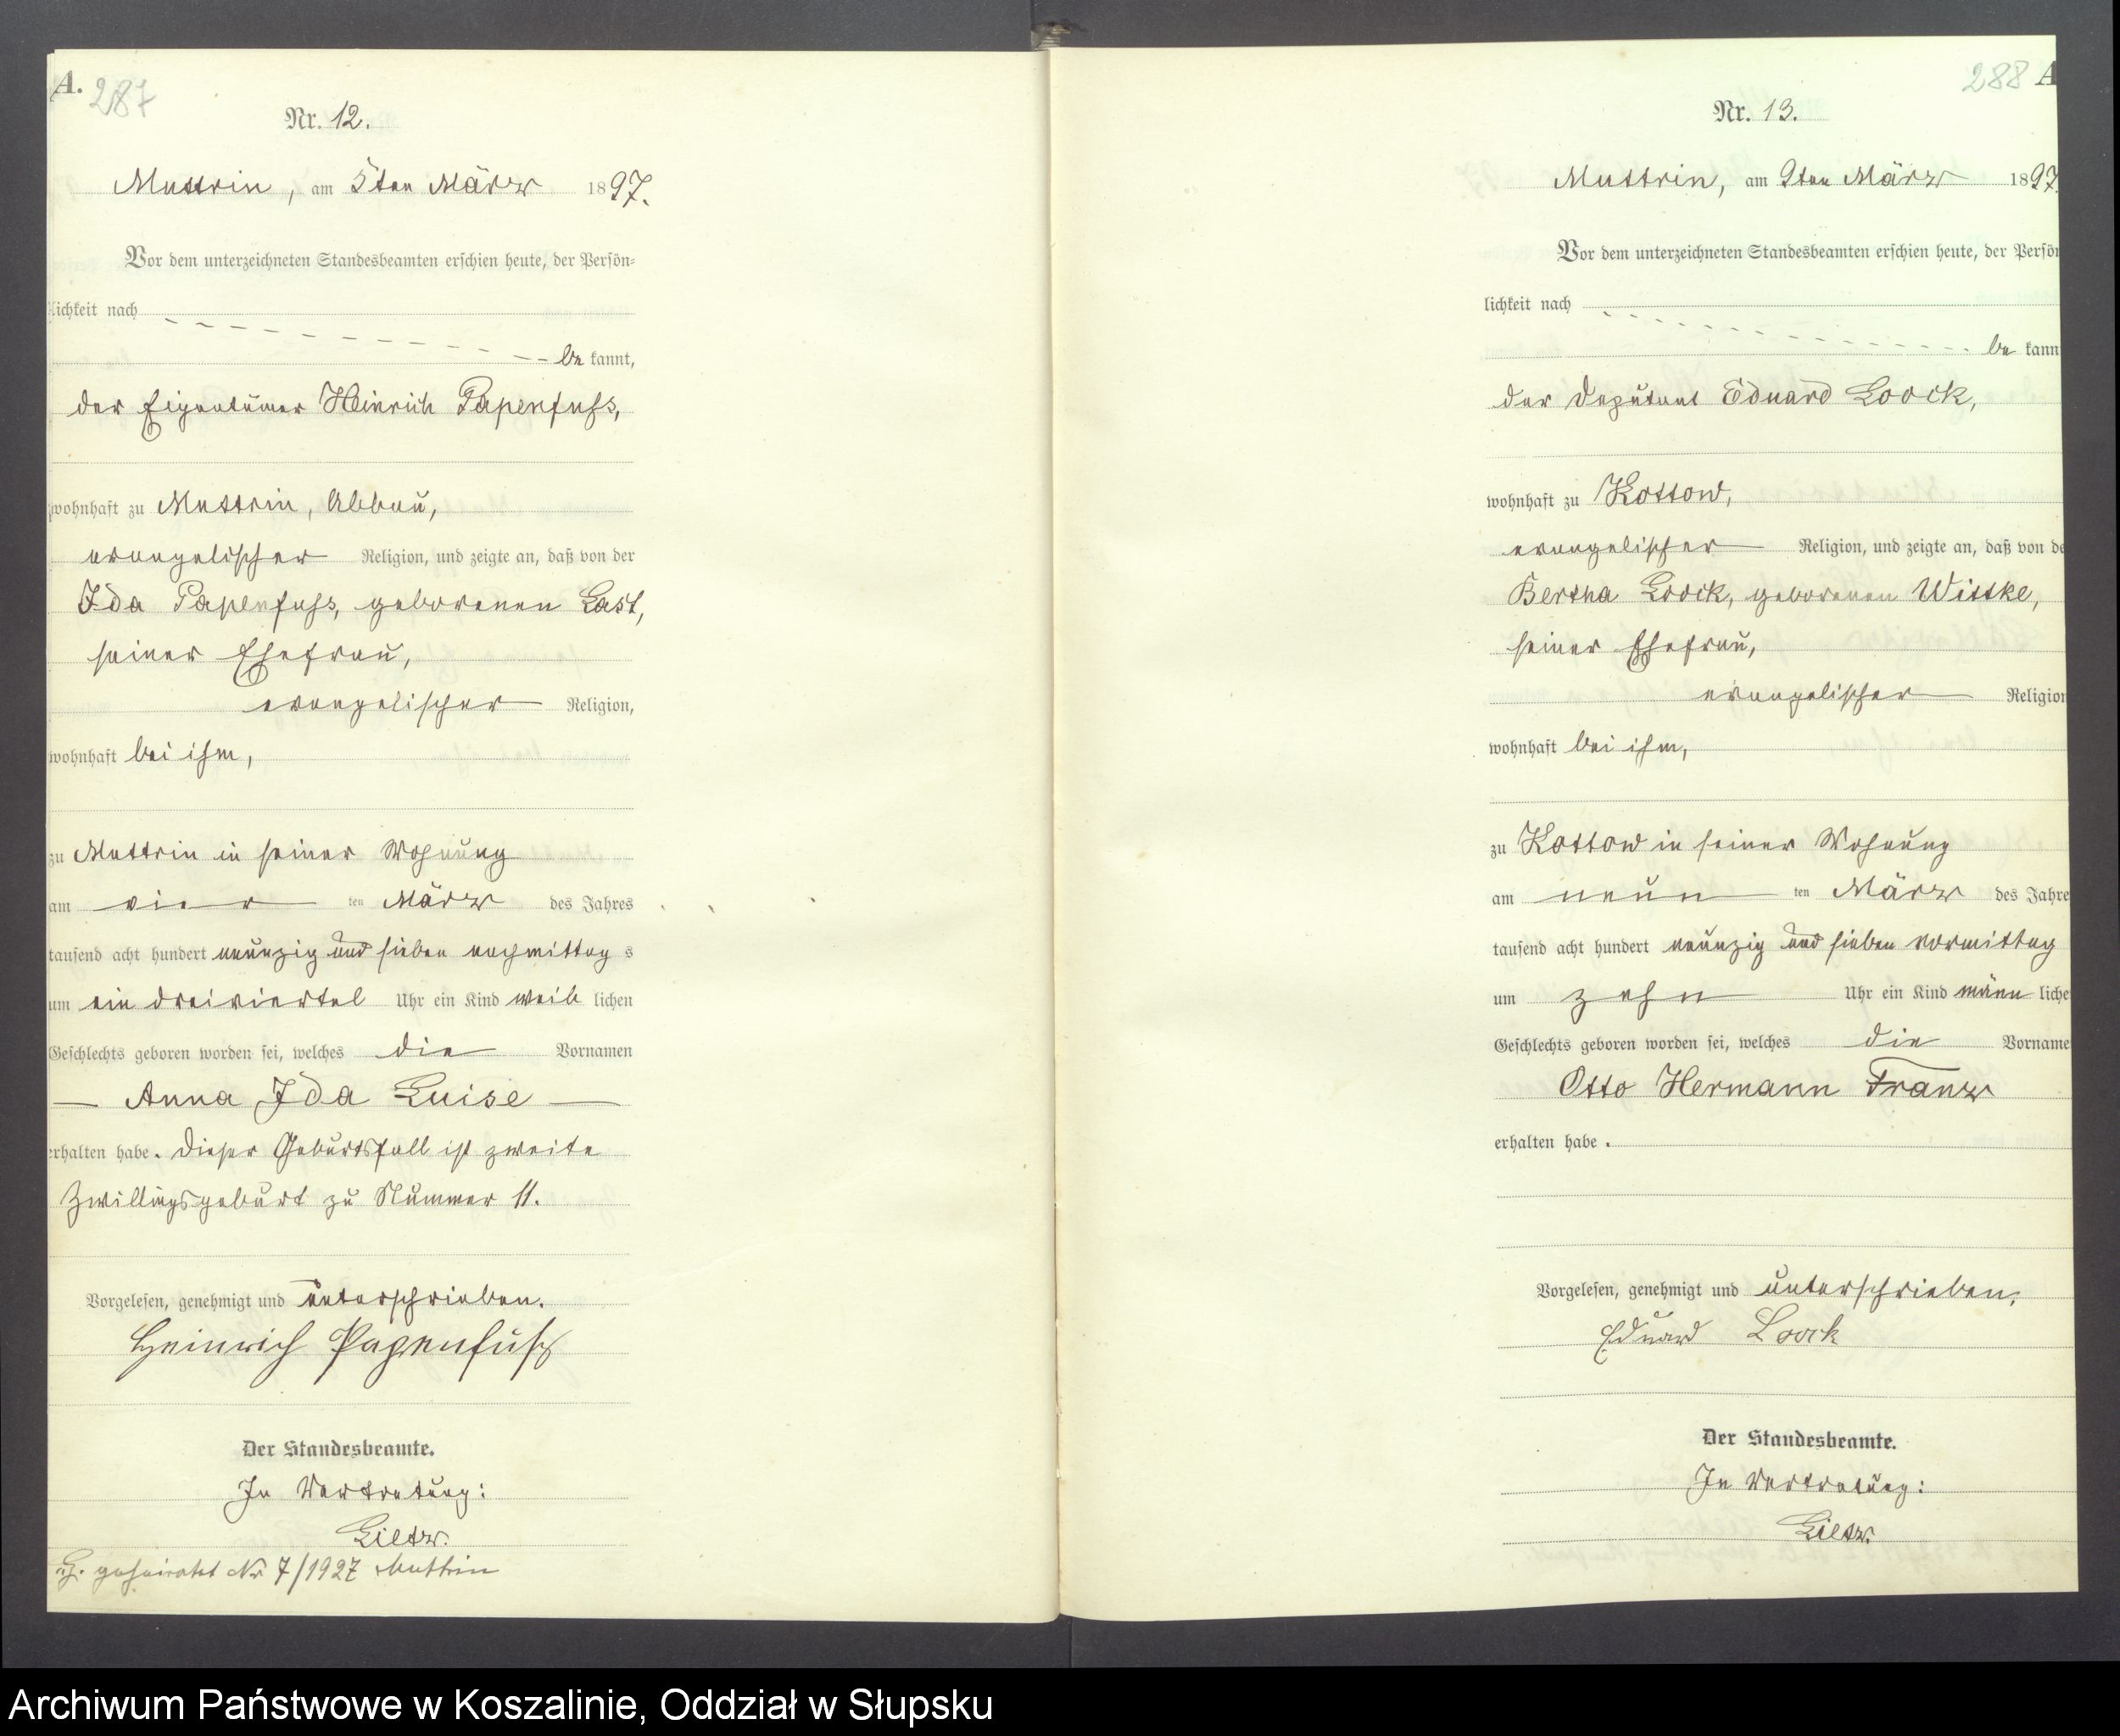 A. 287
Nr. 12.
Muttrin, am 5ten März 1897.
Vor dem unterzeichneten Standesbeamten erschien heute, der Persön-
lichkeit nach
be kannt,
der Eigentümer Heinrich Papenfuss,
wohnhaft zu Muttrin, Abbau,
evangelischer Religion, und zeigte an, daß von der
Ida Papenfuss, geborenen Last,
seiner Ehefrau,
evangelischer Religion,
wohnhaft bei ihm,
zu Muttrin in seiner Wohnung
am vier ten März des Jahres
tausend acht hundert neunzig und sieben nachmittag s
um ein dreiviertel Uhr ein Kind weib lichen
Geschlechts geboren worden sei, welches die Vornamen
Anna Ida Luise
erhalten habe. Dieser Geburtsfall ist zweite
Zwillingsgeburt zu Nummer 11.
Vorgelesen, genehmigt und unterschrieben.
Heinrich Papenfuß
Der Standesbeamte.
In Vertretung:
Lietz.
geheiratet Nr 7/1927 Muttrin
288 A
Nr. 13.
Muttrin, am 9ten März 1897.
Vor dem unterzeichneten Standesbeamten erschien heute, der Persön
lichkeit nach
be kann
der Deputant Eduard Loock,
wohnhaft zu Kottow,
evangelischer Religion, und zeigte an, daß von de
Bertha Loock, geborenen Wittke,
seiner Ehefrau,
evangelischer Religion
wohnhaft bei ihm,
zu Kottow in seiner Wohnung
am neun ten März des Jahre
tausend acht hundert neunzig und sieben vormittag
um zehn Uhr ein Kind männ liche
Geschlechts geboren worden sei, welches die Vorname
Otto Hermann Franz
erhalten habe.
Vorgelesen, genehmigt und unterschrieben.
Eduard Loock
Der Standesbeamte.
In Vertretung:
Lietz.
Archiwum Państwowe w Koszalinie, Oddział w Słupsku